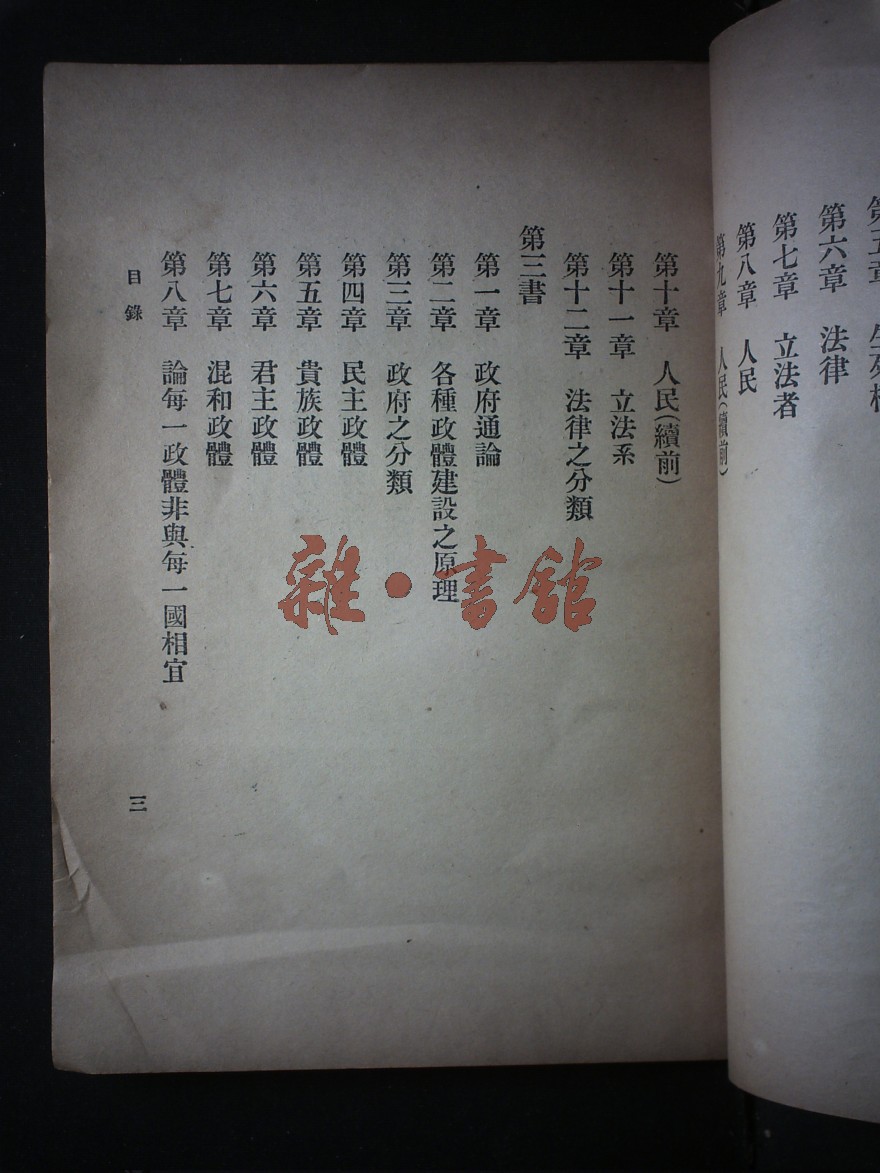 第五章
第六章　法律
第七章　立法者
第八章　人民
第九章　人民（續前）
第十章　人民（續前）
第十一章　立法系
第十二章　法律之分類
第三書
第一章　政府通論
第二章　各種政體建設之原理
第三章　政府之分類
第四章　民主政體
第五章　貴族政體
第六章　君主政體
第七章　混和政體
第八章　論每一政體非與每一國相宜
目錄
三
雜·書館